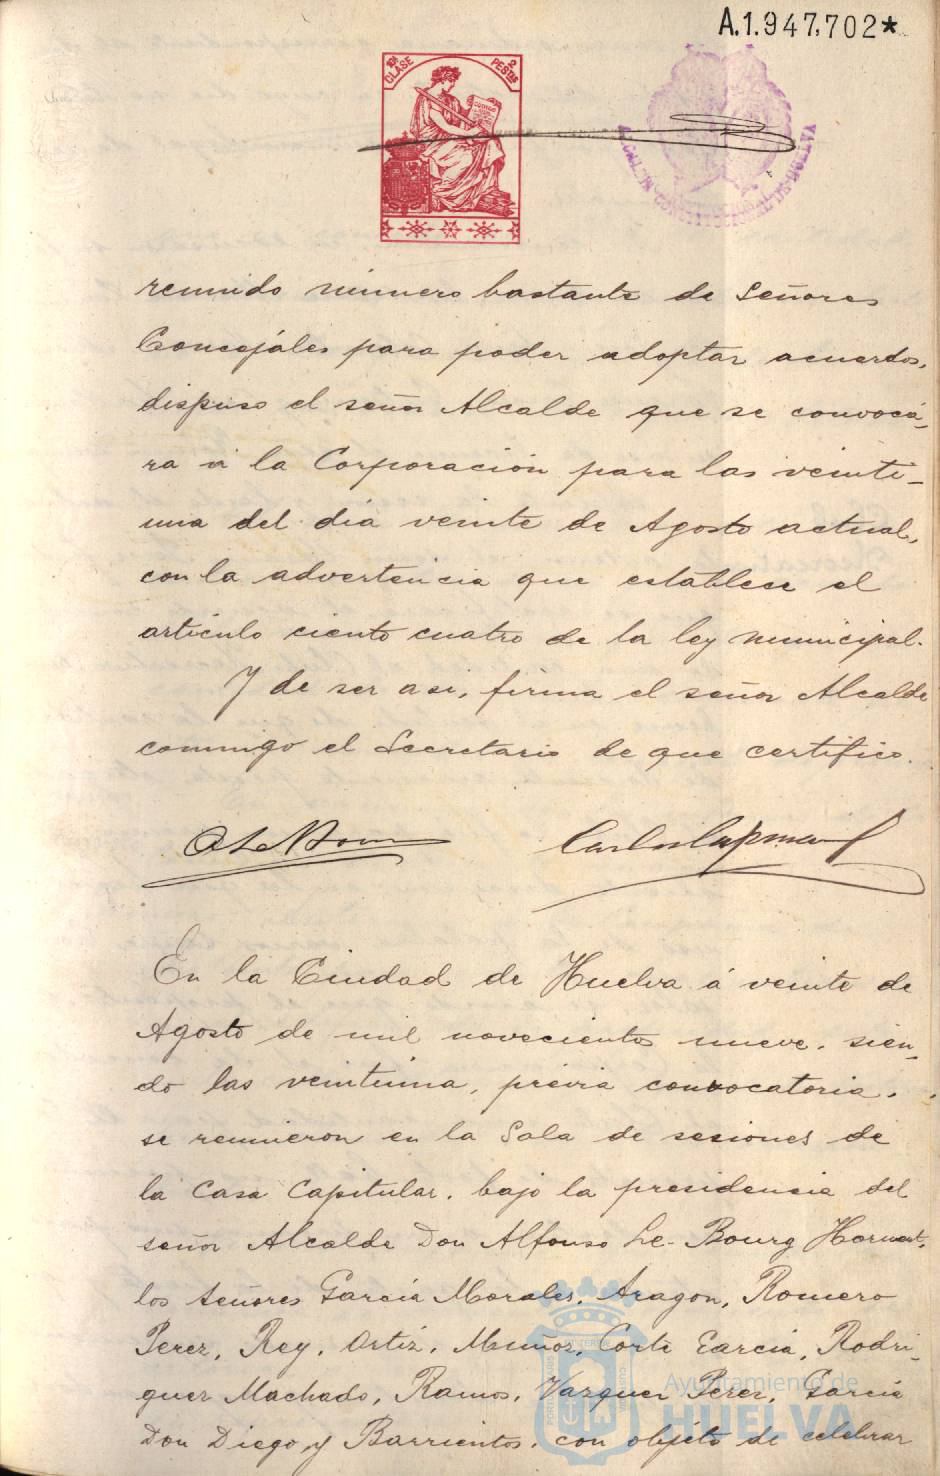 A.1.947,702*
10ª CLASE
2 PESTAS
ALCALDIA CONSTITUCIONAL DE HUELVA
reunido número bastante de Señores
Concejáles para poder adoptar acuerdos,
dispuso el señor Alcalde que se convocá-
ra á la Corporación para las veinti-
una del dia veinte de Agosto actual,
con la advertencia que establece el
artículo ciento cuatro de la ley municipal.
Y de ser asi, firma el señor Alcalde
conmigo el Secretario de que certifico.
En la Ciudad de Huelva á veinte de
Agosto de mil novecientos nueve, sien-
do las veintiuna, prévia convocatoria,
se reunieron en la Sala de sesiones de
la Casa Capitular, bajo la presidencia del
señor Alcalde Don Alfonso Le-Bourg
los señores García Morales, Aragon, Romero
Perez, Rey, Ortiz, Muñoz, Corte Garcia, Rodri-
guez Machado, Ramos, Vazquez Perez, García
Don Diego y Barrientos, con objeto de celebrar
Ayuntamiento de
HUELVA